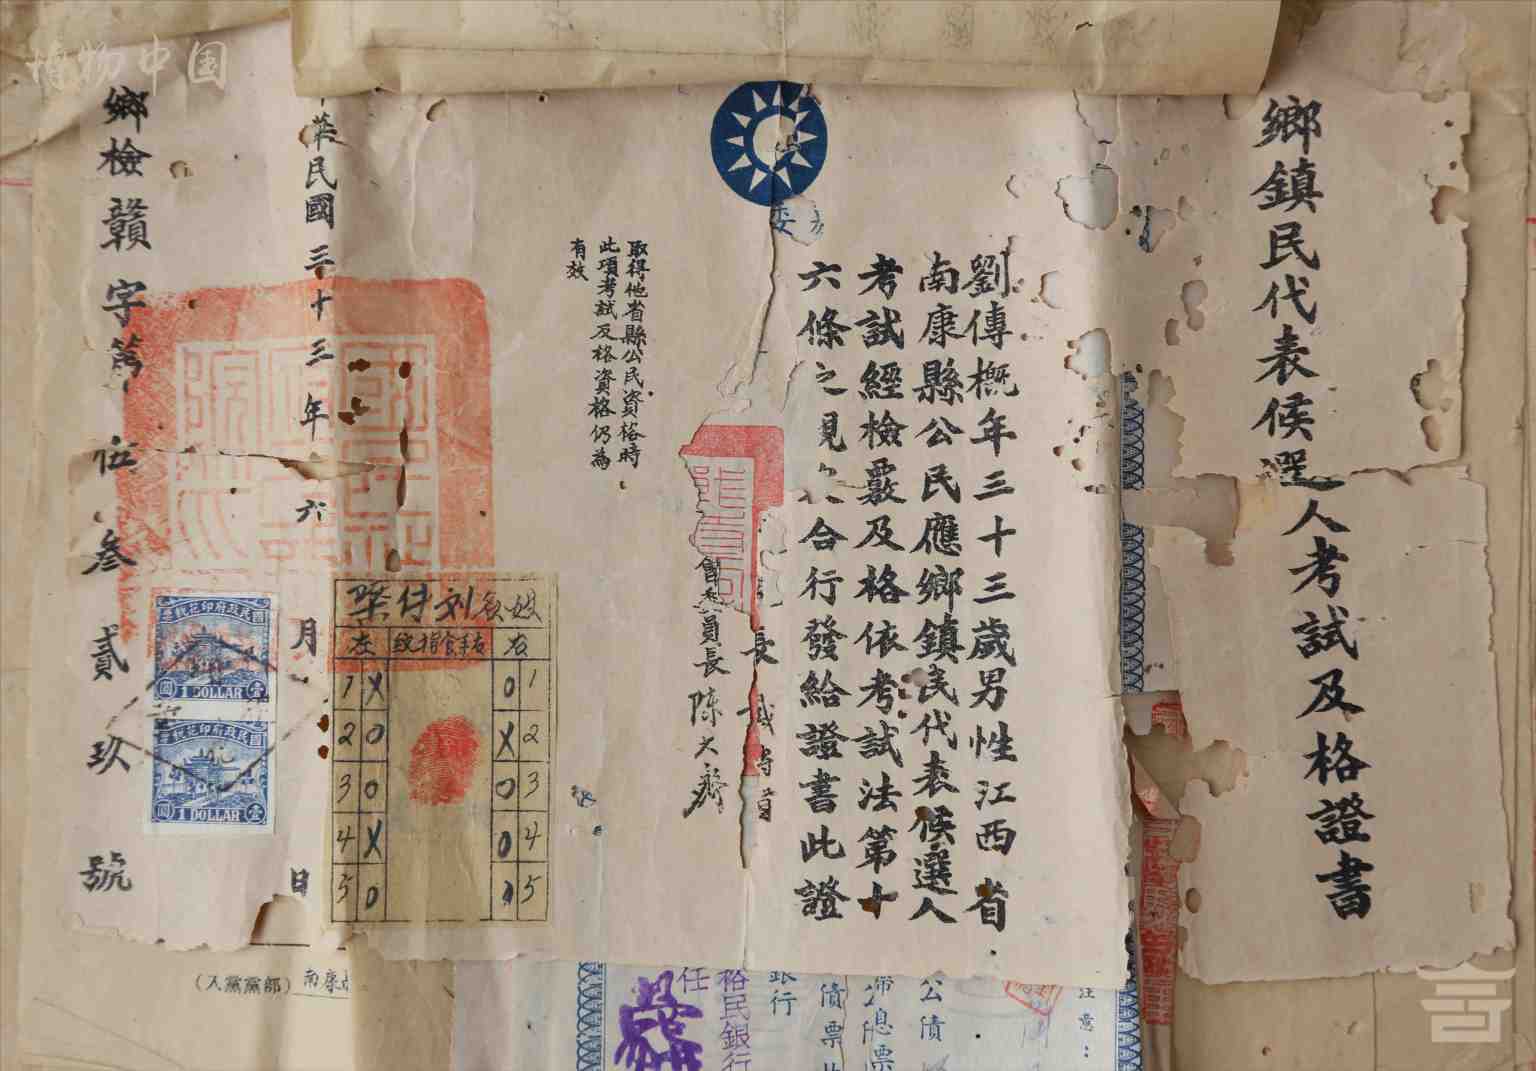 鄉鎮民代表候選人考試及格證書
劉傳概年三十三歲男性江西省
南康縣公民應鄉鎮民代表候選人
考試經檢覈及格依考試法第十
六條之規定合行發給證書此證
長戴傳賢
會委員長陳大齊
取得他省縣公民資格時
此項考試及格資格仍為
有效
華民國三十三年六月日
鄉檢贛字第伍叁貳玖號
國民政府印花稅票
壹圓
1 DOLLAR
國民政府印花稅票
壹圓
1 DOLLAR
刘传
左 右手食指纹 右
1 X O 1
2 O X 2
3 O O 3
4 X O 4
5 O 5
(入黨黨部) 南康
注意：
公債
息票
債票
銀行
裕民銀行
任
博物中国